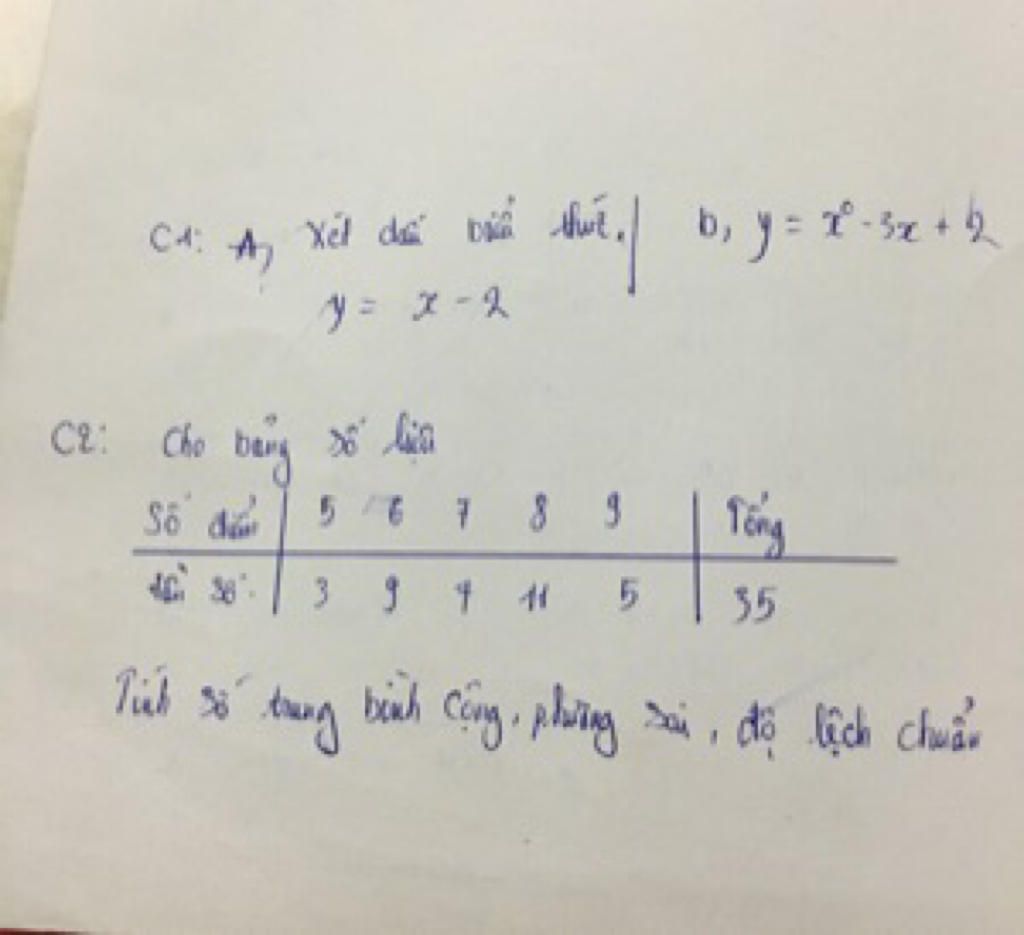 C1: A, Xét dấu biểu thức. | b, y = x² - 3x + 2
y = x - 2
C2: Cho bảng số liệu
Số điểm 5 6 7 8 9 Tổng
tần số 3 9 7 11 5 35
Tính số trung bình cộng, phương sai, độ lệch chuẩn